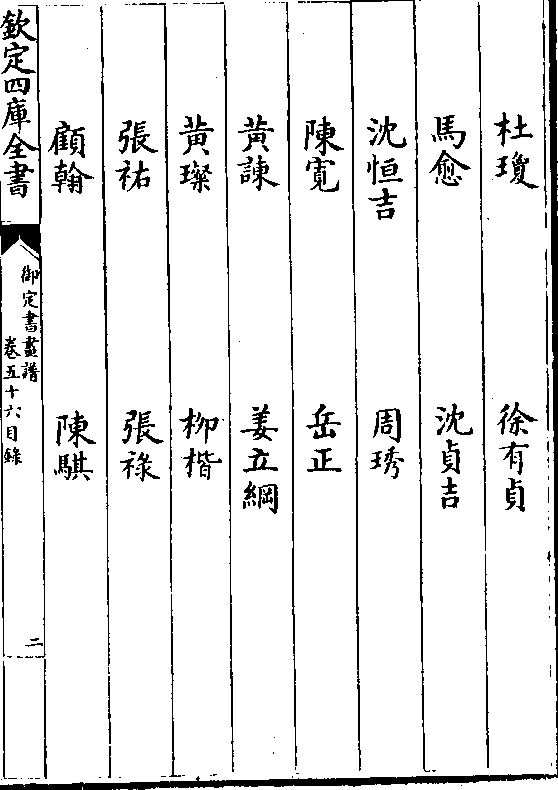 杜瓊　徐有貞
馬愈　沈貞吉
沈恒吉　周琇
陳寛　岳正
黃諫　姜立綱
黃璨　柳楷
張祐　張祿
顧翰　陳騏
欽定四庫全書
御定書畫譜
卷五十六目錄
二